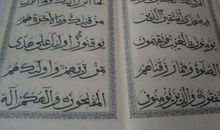 للمتقين الذين
يؤمنون بالغيب ويقيمون
الصلوة ومما رزقنهم
ينفقون والذين يؤمنون
من قبلك وبالاخرة هم
يوقنون اولئك على هدى
من ربهم واولئك هم
المفلحون والهكم اله